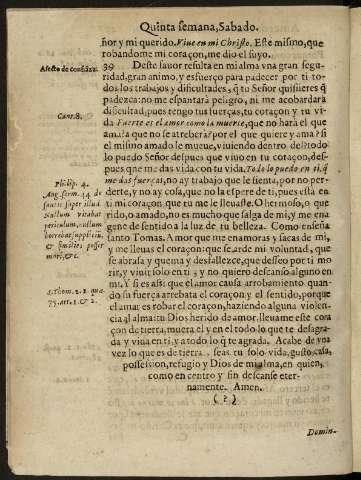 Quinta semana, Sabado.
ñor y mi querido. Viue en mi Christo. Este mismo, que
robandome mi coraçon, me dio el suyo.
Afecto de confiãza.
39 Deste fauor resulta en mi alma vna gran segu-
ridad, gran animo, y esfuerço para padecer por ti to-
dos los trabajos y dificultades, q̃ tu Señor quisieres q̃
padezca: no me espantarà peligro, ni me acobardarà
dificultad, pues tengo tus fuerças, tu coraçon y tu vi-
Cant. 8.
da Fuerte es el amor como la muerte, que no harà el que
ama? a que no se atreberà por el que quiere y ama? si
el mismo amado le mueue, viuiendo dentro del? todo
lo puedo Señor despues que viuo en tu coraçon, des-
pues que me das vida con tu vida. Todo lo puedo en ti, q̃
Philip. 4.
me das fuerças, no ay trabajo que le sienta, por no per-
Aug. serm. 44. de
derte, y no ay cosa, que no la espere de ti, pues està en
sanctis super illud
ti mi coraçon que tu me le lleuaste. O hermoso, o que
Nullum vitabat
rido, o amado, no es mucho que salga de mi, y me ena
periculum, nullum
gene de sentido a la luz de tu belleza. Como enseña
horrebat supplicium,
santo Tomas. Amor que me enamoras y sacas de mi,
& similia; posset
y me lleuas el coraçon: que se arde mi voluntad, que
mori, &c.
se abrasa y quema y desfallezce, que desseo por ti mo
rir, y viuir solo en ti, y no quiero descanso alguno en
mi. Y si es assi: que el amor causa arrobamiento quan-
S. Thom. 2. 2. quæ.
do su fuerça arrebata el coraçon y el sentido, porque
75. art. 1. & 2.
el amar es robar el coraçon, haziendo alguna violen-
cia al alma: tu Dios herido de amor, lleuame este cora
çon de tierra, muera el y en el todo lo que te desagra-
da, y viua en ti, y a todo lo q̃ te agrada. Acabe de vna
vez lo que es de tierra. seas tu solo vida, gusto, casa,
possession, refugio y Dios de mi alma, en quien,
como en centro y fin descanse eter-
namente. Amen.
( ? )
Domin-